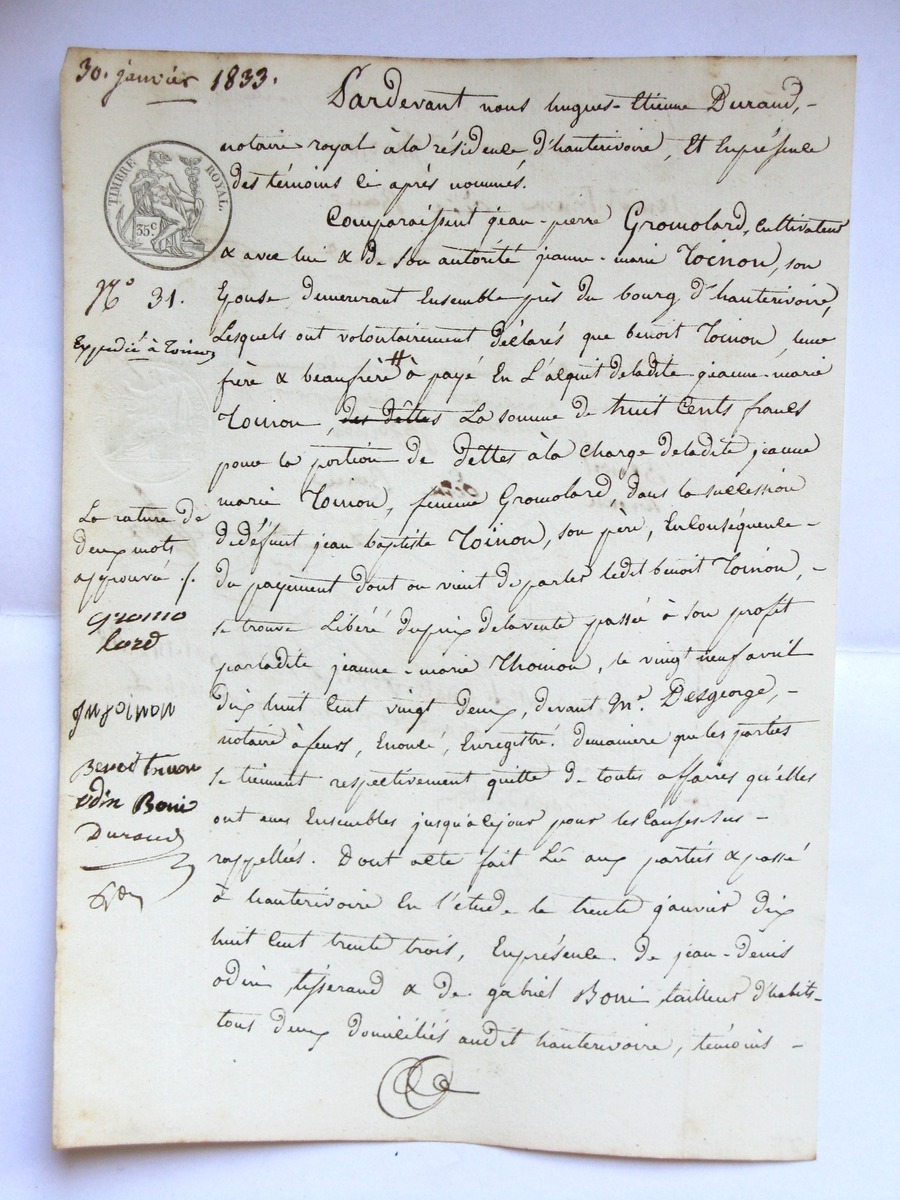 30. janvier 1833.
Pardevant nous hugues-Etienne Durand,-
notaire royal à la résidence d'hauterivoire, Et Enprésence
des témoins ci après nommés.
TIMBRE ROYAL.
35c
Comparaissent jean-pierre Gromolard, Cultivateur
& avec lui & de son autorité jeanne-marie Toinon, son
N° 31.
Epouse demeurant Ensemble près du bourg d'hauterivoire,
Expédié à Toinon
Lesquels ont volontairement déclarés que benoit Toinon, leur
frère & beaufrère # à payé En L'alquit deladite jeanne-marie
Toinon, des dêttes La somme de huit Cents francs
pour la portion de dettes à la charge deladite jeanne
marie Toinon, femme Gromolard, dans la succession
dedéfunt jean baptiste Toinon, son père, Enconséquence-
du payement dont on vient de parler ledit benoit Toinon,-
se trouve Libéré duprix delavente passée à son profit
parladite jeanne-marie Thoinon, le vingt neuf avril
dix huit cent vingt deux, devant Me. Desgeorge,-
notaire à feurs, Enregistré. demanière que les parties
se tiennent respectivement quitte de toutes affaires qu'elles
ont eues Ensembles jusqu'àcejour pour les Causes sus-
rappellées. Dont acte fait Lû aux partiés & passé
à hauterivoire En l'étude le trente janvier dix
huit cent trente trois, Enprésence de jean-denis
odin tisserand & de gabriel Boni tailleur d'habits-
tous deux domiciliés audit hauterivoire, témoins-
La rature de
deux mots
approuvé ./.
gromo
lard
Benoit
odin Boni
Durand